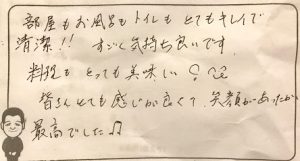 部屋もお風呂もトイレもとてもキレイで
清潔!! すごく気持ち良いです。
料理もとっても美味しい♡
皆さんとても感じが良くて、笑顔があったかく
最高でした♫